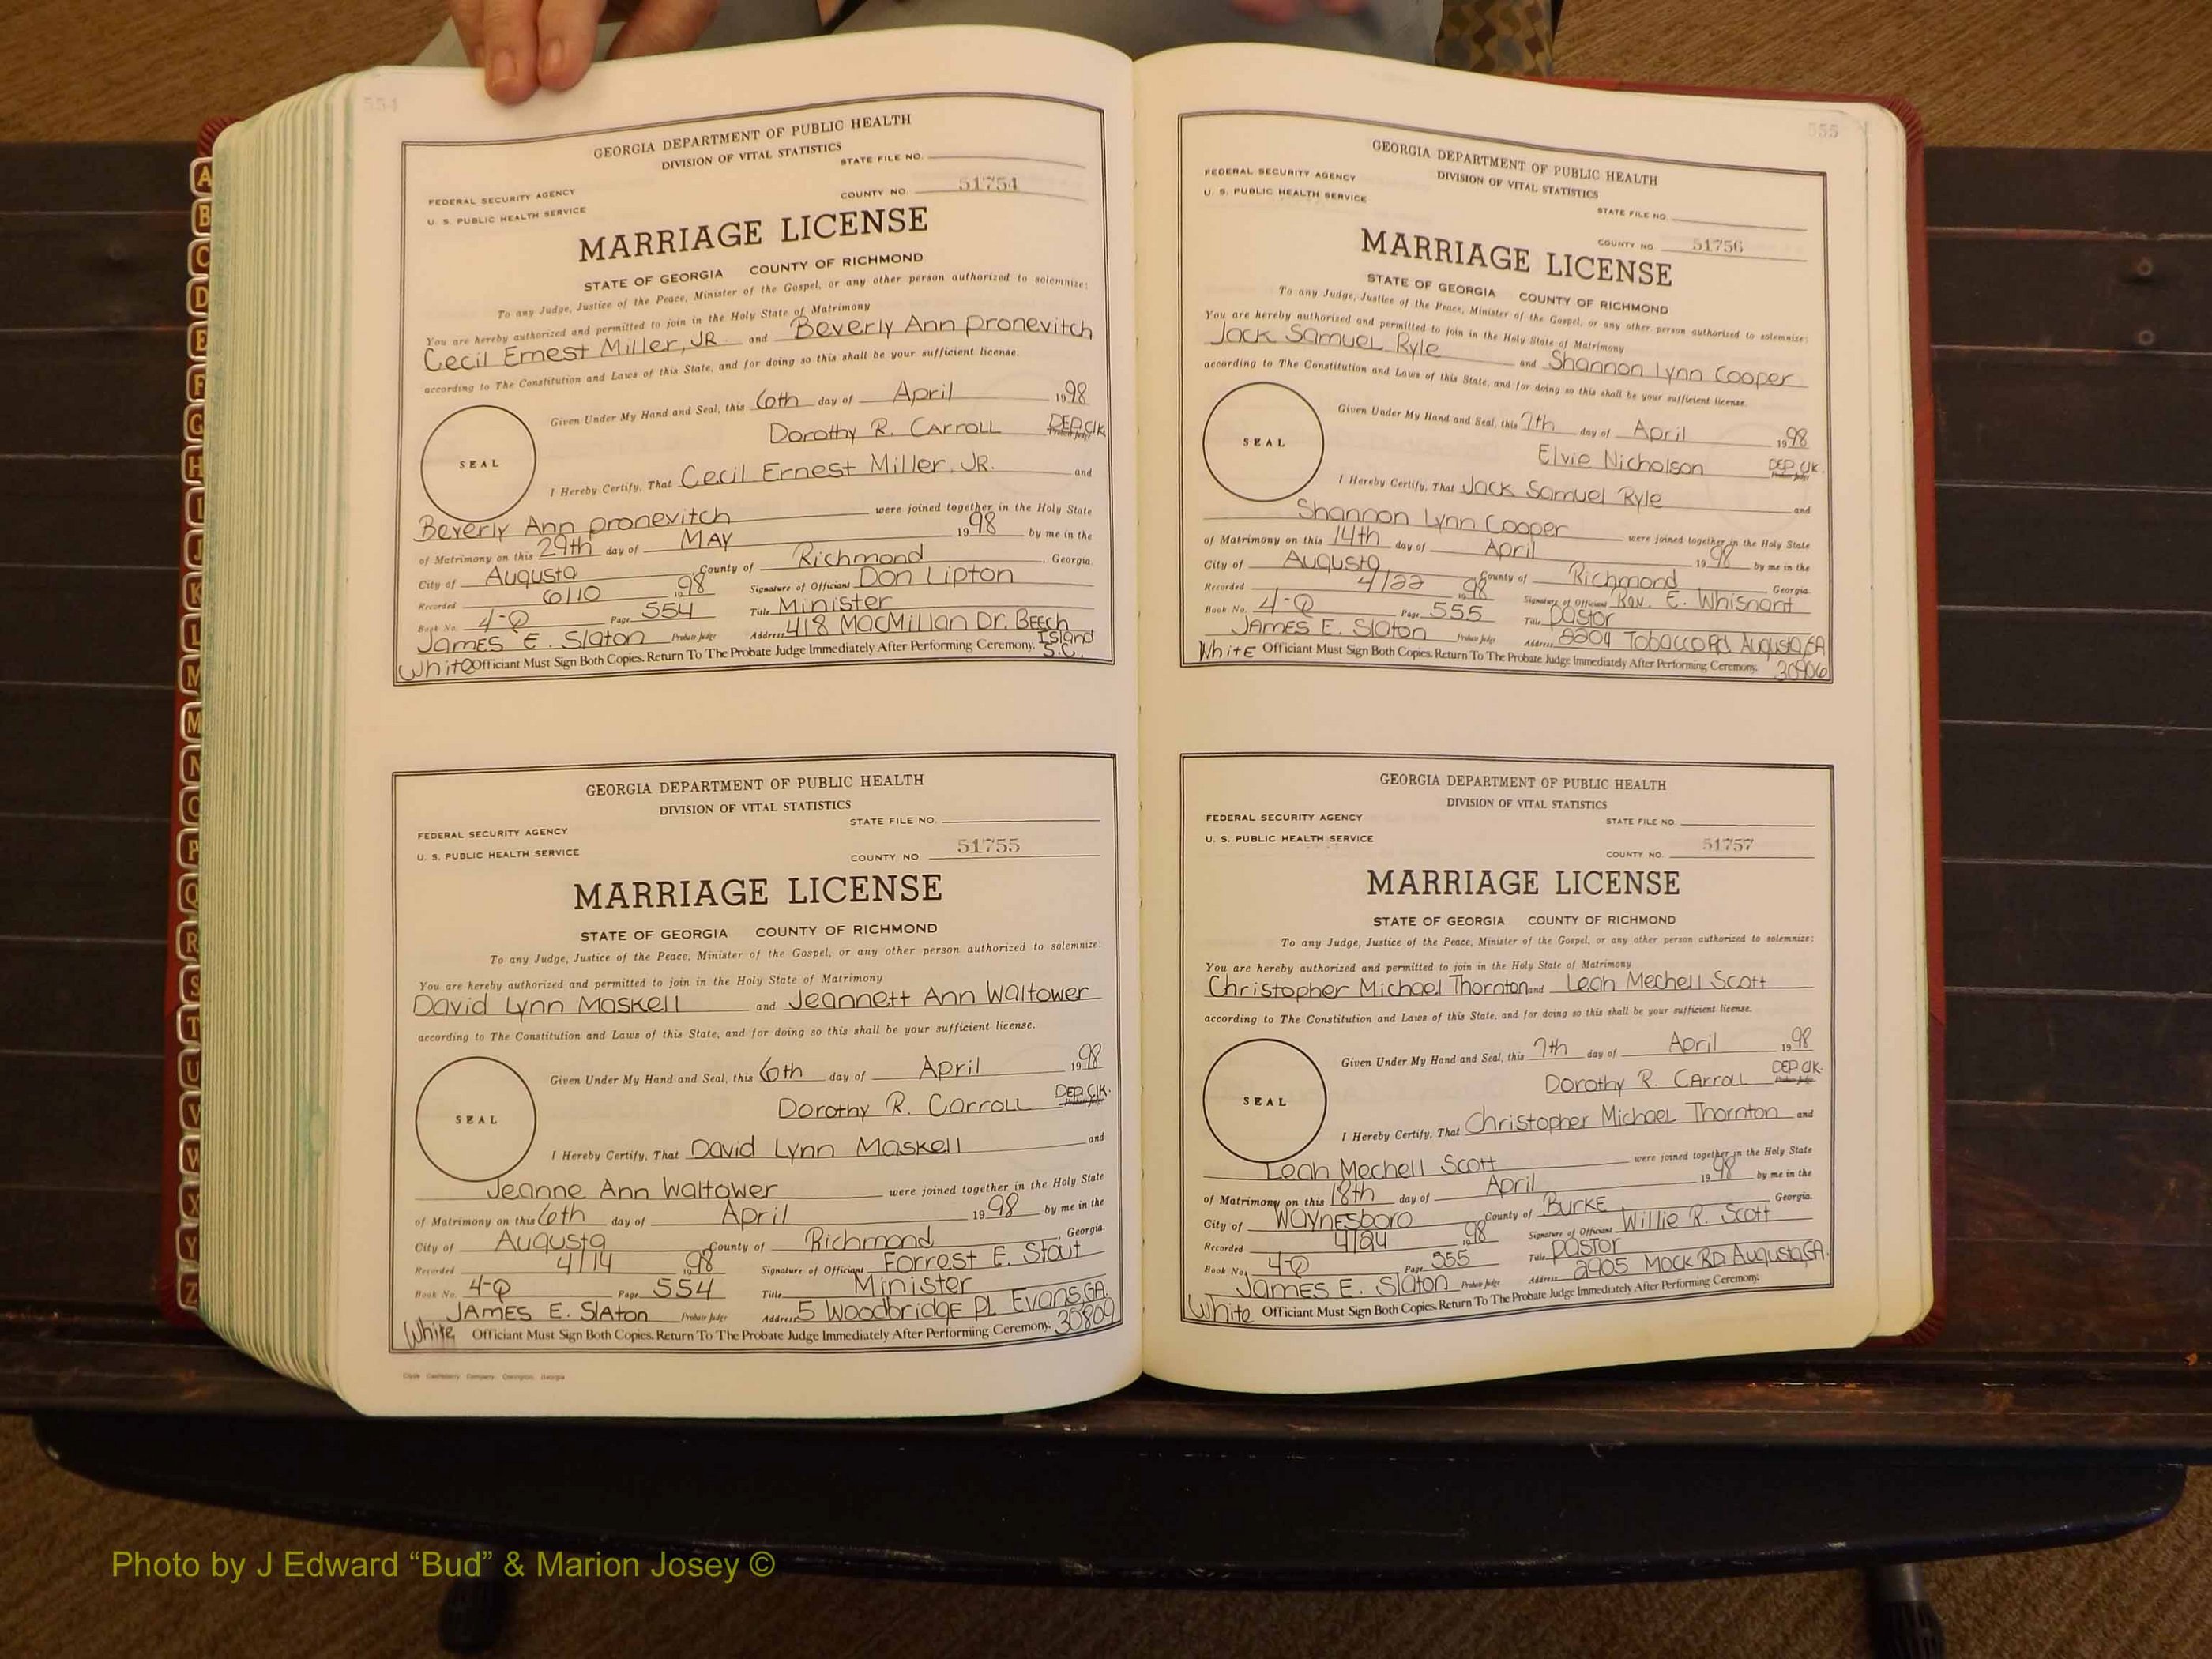 554
GEORGIA DEPARTMENT OF PUBLIC HEALTH
DIVISION OF VITAL STATISTICS
STATE FILE NO.
FEDERAL SECURITY AGENCY
U. S. PUBLIC HEALTH SERVICE
COUNTY NO. 51754
MARRIAGE LICENSE
STATE OF GEORGIA COUNTY OF RICHMOND
To any Judge, Justice of the Peace, Minister of the Gospel, or any other person authorized to solemnize:
You are hereby authorized and permitted to join in the Holy State of Matrimony
Cecil Ernest Miller, JR and Beverly Ann Pronevitch
according to The Constitution and Laws of this State, and for doing so this shall be your sufficient license.
Given Under My Hand and Seal, this 6th day of April 1998
Dorothy R. Carroll DEP. Clk
SEAL
I Hereby Certify, That Cecil Ernest Miller, JR. and
Beverly Ann Pronevitch were joined together in the Holy State
of Matrimony on this 29th day of MAY 1998 by me in the
City of Augusta County of Richmond Georgia.
Recorded 6/10 1998 Signature of Officiant Don Lipton
Book No. 4-Q Page 554 Title Minister
James E. Slaton Probate Judge Address 418 MacMillan Dr. Beech Island S.C.
White Officiant Must Sign Both Copies. Return To The Probate Judge Immediately After Performing Ceremony.
GEORGIA DEPARTMENT OF PUBLIC HEALTH
DIVISION OF VITAL STATISTICS
STATE FILE NO.
FEDERAL SECURITY AGENCY
U. S. PUBLIC HEALTH SERVICE
COUNTY NO. 51755
MARRIAGE LICENSE
STATE OF GEORGIA COUNTY OF RICHMOND
To any Judge, Justice of the Peace, Minister of the Gospel, or any other person authorized to solemnize:
You are hereby authorized and permitted to join in the Holy State of Matrimony
David Lynn Maskell and Jeannett Ann Waltower
according to The Constitution and Laws of this State, and for doing so this shall be your sufficient license.
Given Under My Hand and Seal, this 6th day of April 1998
Dorothy R. Carroll DEP. Clk.
SEAL
I Hereby Certify, That David Lynn Maskell and
Jeanne Ann Waltower were joined together in the Holy State
of Matrimony on this 6th day of April 1998 by me in the
City of Augusta County of Richmond Georgia.
Recorded 4/14 1998 Signature of Officiant Forrest E. Stout
Book No. 4-Q Page 554 Title Minister
James E. Slaton Probate Judge Address 5 Woodbridge PL Evans, GA. 30809
White Officiant Must Sign Both Copies. Return To The Probate Judge Immediately After Performing Ceremony.
Company Covington, Georgia
555
GEORGIA DEPARTMENT OF PUBLIC HEALTH
DIVISION OF VITAL STATISTICS
FEDERAL SECURITY AGENCY
U. S. PUBLIC HEALTH SERVICE
STATE FILE NO.
COUNTY NO 51756
MARRIAGE LICENSE
STATE OF GEORGIA COUNTY OF RICHMOND
To any Judge, Justice of the Peace, Minister of the Gospel, or any other person authorized to solemnize:
You are hereby authorized and permitted to join in the Holy State of Matrimony
Jack Samuel Ryle and Shannon Lynn Cooper
according to The Constitution and Laws of this State, and for doing so this shall be your sufficient license.
Given Under My Hand and Seal, this 7th day of April 1998
Elvie Nicholson DEP. Clk.
SEAL
I Hereby Certify, That Jack Samuel Ryle and
Shannon Lynn Cooper were joined together in the Holy State
of Matrimony on this 14th day of April 1998 by me in the
City of Augusta County of Richmond Georgia.
Recorded 4/22 1998 Signature of Officiant Rev. E. Whisnant
Book No. 4-Q Page 555 Title Pastor
James E. Slaton Probate Judge Address 2204 Tobacco Rd Augusta, GA 30906
White Officiant Must Sign Both Copies. Return To The Probate Judge Immediately After Performing Ceremony.
GEORGIA DEPARTMENT OF PUBLIC HEALTH
DIVISION OF VITAL STATISTICS
FEDERAL SECURITY AGENCY
STATE FILE NO.
U. S. PUBLIC HEALTH SERVICE
COUNTY NO. 51757
MARRIAGE LICENSE
STATE OF GEORGIA COUNTY OF RICHMOND
To any Judge, Justice of the Peace, Minister of the Gospel, or any other person authorized to solemnize:
You are hereby authorized and permitted to join in the Holy State of Matrimony
Christopher Michael Thornton and Leah Mechell Scott
according to The Constitution and Laws of this State, and for doing so this shall be your sufficient license.
Given Under My Hand and Seal, this 7th day of April 1998
Dorothy R. Carroll DEP Clk.
SEAL
I Hereby Certify, That Christopher Michael Thornton and
Leah Mechell Scott were joined together in the Holy State
of Matrimony on this 18th day of April 1998 by me in the
City of Waynesboro County of Burke Georgia.
Recorded 4/24 1998 Signature of Officiant Willie R. Scott
Book No. 4-Q Page 555 Title Pastor
James E. Slaton Probate Judge Address 2905 Mock RD Augusta, GA.
White Officiant Must Sign Both Copies. Return To The Probate Judge Immediately After Performing Ceremony.
A
B
C
D
E
F
G
H
I
J
K
L
M
M
N
O
P
Q
R
S
T
U
V
W
X
Y
Z
Photo by J Edward “Bud” & Marion Josey ©